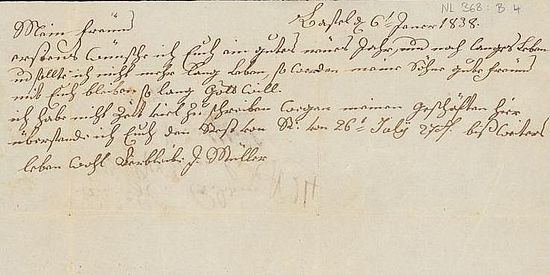 NL 368 : B 4
Kastel d. 6t Janer 1838.
Mein Freund
erstens wünsche ich Euch ein gutes neues Jahr, und noch langes Leben
und sollte ich nicht mehr lang leben, so werden meine Söhne gute Freund
mit Euch bleiben so lang Gott will.
ich habe nicht Zeit viel zu schreiben wegen meinen geschäften hier
übersende ich Euch den Rest von R. von 26t July bis weiters
leben wohl Verbleibe J. Müller